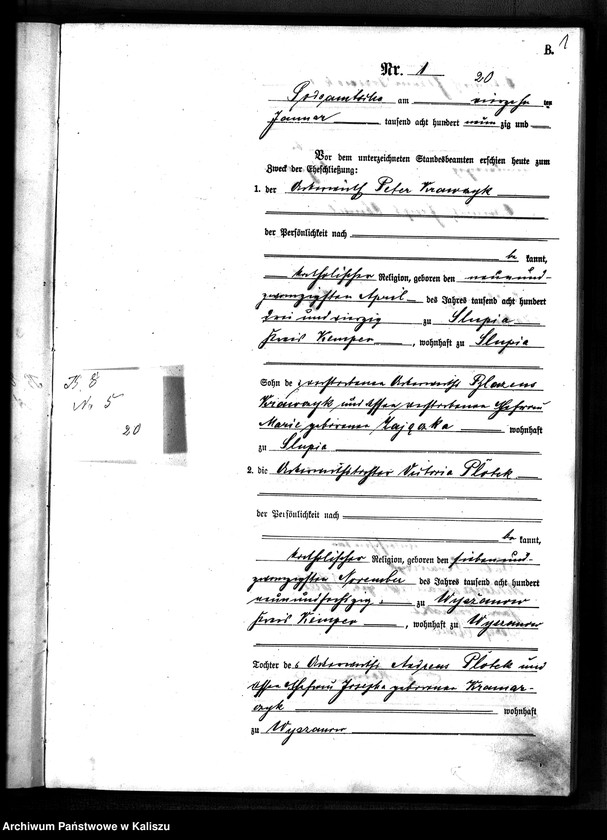 B. 1
Nr. 1
20
am vierzehn ten
Januar tausend acht hundert neun zig und
Vor dem unterzeichneten Standesbeamten erschien heute zum
Zweck der Eheschließung:
1. der Ackerwirth Peter Krawczyk
der Persönlichkeit nach
be kannt,
katholischer Religion, geboren den neunund-
zwanzigsten April des Jahres tausend acht hundert
drei und vierzig zu Slupia
Kreis Kempen, wohnhaft zu Slupia
Sohn de s verstorbenen Ackerwirths
Krawczyk und dessen verstorbenen Ehefrau
Marie geborenen wohnhaft
zu Slupia
B. 8
Nr 5
20
2. die Ackerwirthstochter Victoria Plotek
der Persönlichkeit nach
be kannt,
katholischer Religion, geboren den siebenund-
zwanzigsten November des Jahres tausend acht hundert
neunundsechszig zu Wyszanow
Kreis Kempen, wohnhaft zu Wyszanow
Tochter des Ackerwirths Andreas Plotek und
dessen Ehefrau Josepha geborenen Kramar-
czyk wohnhaft
zu Wyszanow
Archiwum Państwowe w Kaliszu